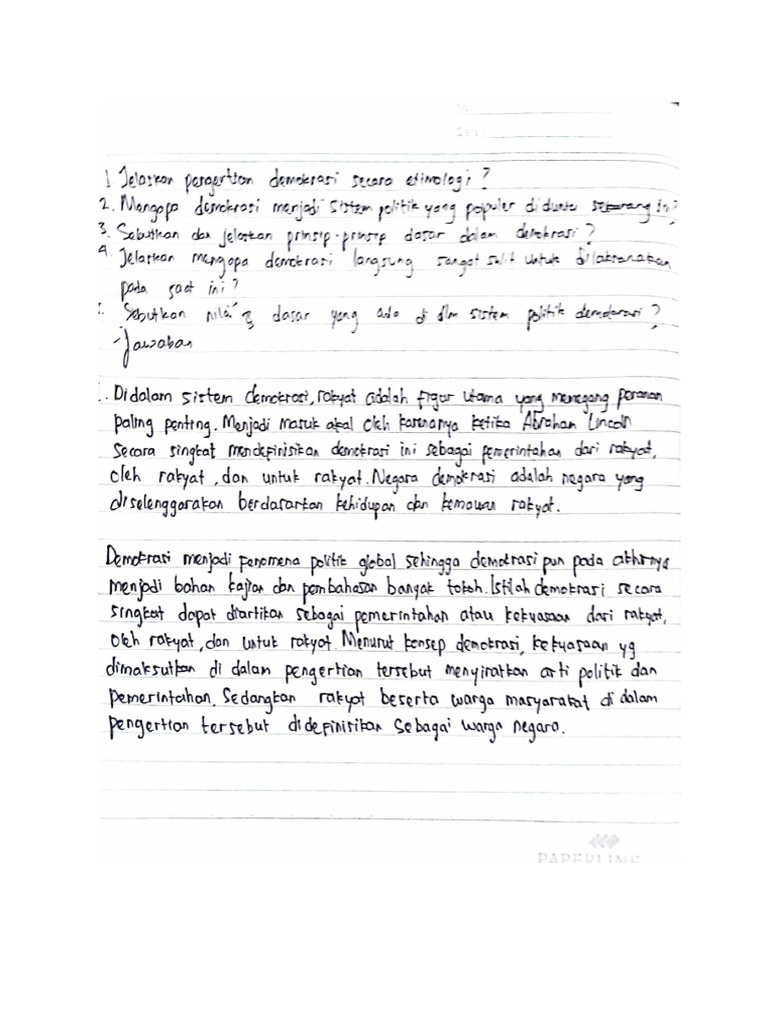 1 Jelaskan pengertian demokrasi secara etimologi?
2. Mengapa demokrasi menjadi sistem politik yang populer di dunia sekarang ini?
3. Sebutkan dan jelaskan prinsip-prinsip dasar dalam demokrasi?
4. Jelaskan mengapa demokrasi langsung sangat sulit untuk dilaksanakan
pada saat ini?
Sebutkan nilai 2 dasar yang ada di dlm sistem politik demokrasi?
-Jawaban
1. Didalam sistem demokrasi, rakyat adalah figur utama yang memegang peranan
paling penting. Menjadi masuk akal oleh karenanya ketika Abraham Lincoln
Secara singkat mendefinisikan demokrasi ini sebagai pemerintahan dari rakyat,
oleh rakyat, dan untuk rakyat. Negara demokrasi adalah negara yang
diselenggarakan berdasarkan kehidupan dan kemauan rakyat.
Demokrasi menjadi fenomena politik global sehingga demokrasi pun pada akhirnya
menjadi bahan kajian dan pembahasan banyak tokoh. Istilah demokrasi secara
singkat dapat diartikan sebagai pemerintahan atau kekuasaan dari rakyat,
oleh rakyat, dan untuk rakyat. Menurut konsep demokrasi, kekuasaan yg
dimaksutkan di dalam pengertian tersebut menyiratkan arti politik dan
pemerintahan. Sedangkan rakyat beserta warga masyarakat di dalam
pengertian tersebut didefinisikan sebagai warga negara.
PAPERLINE